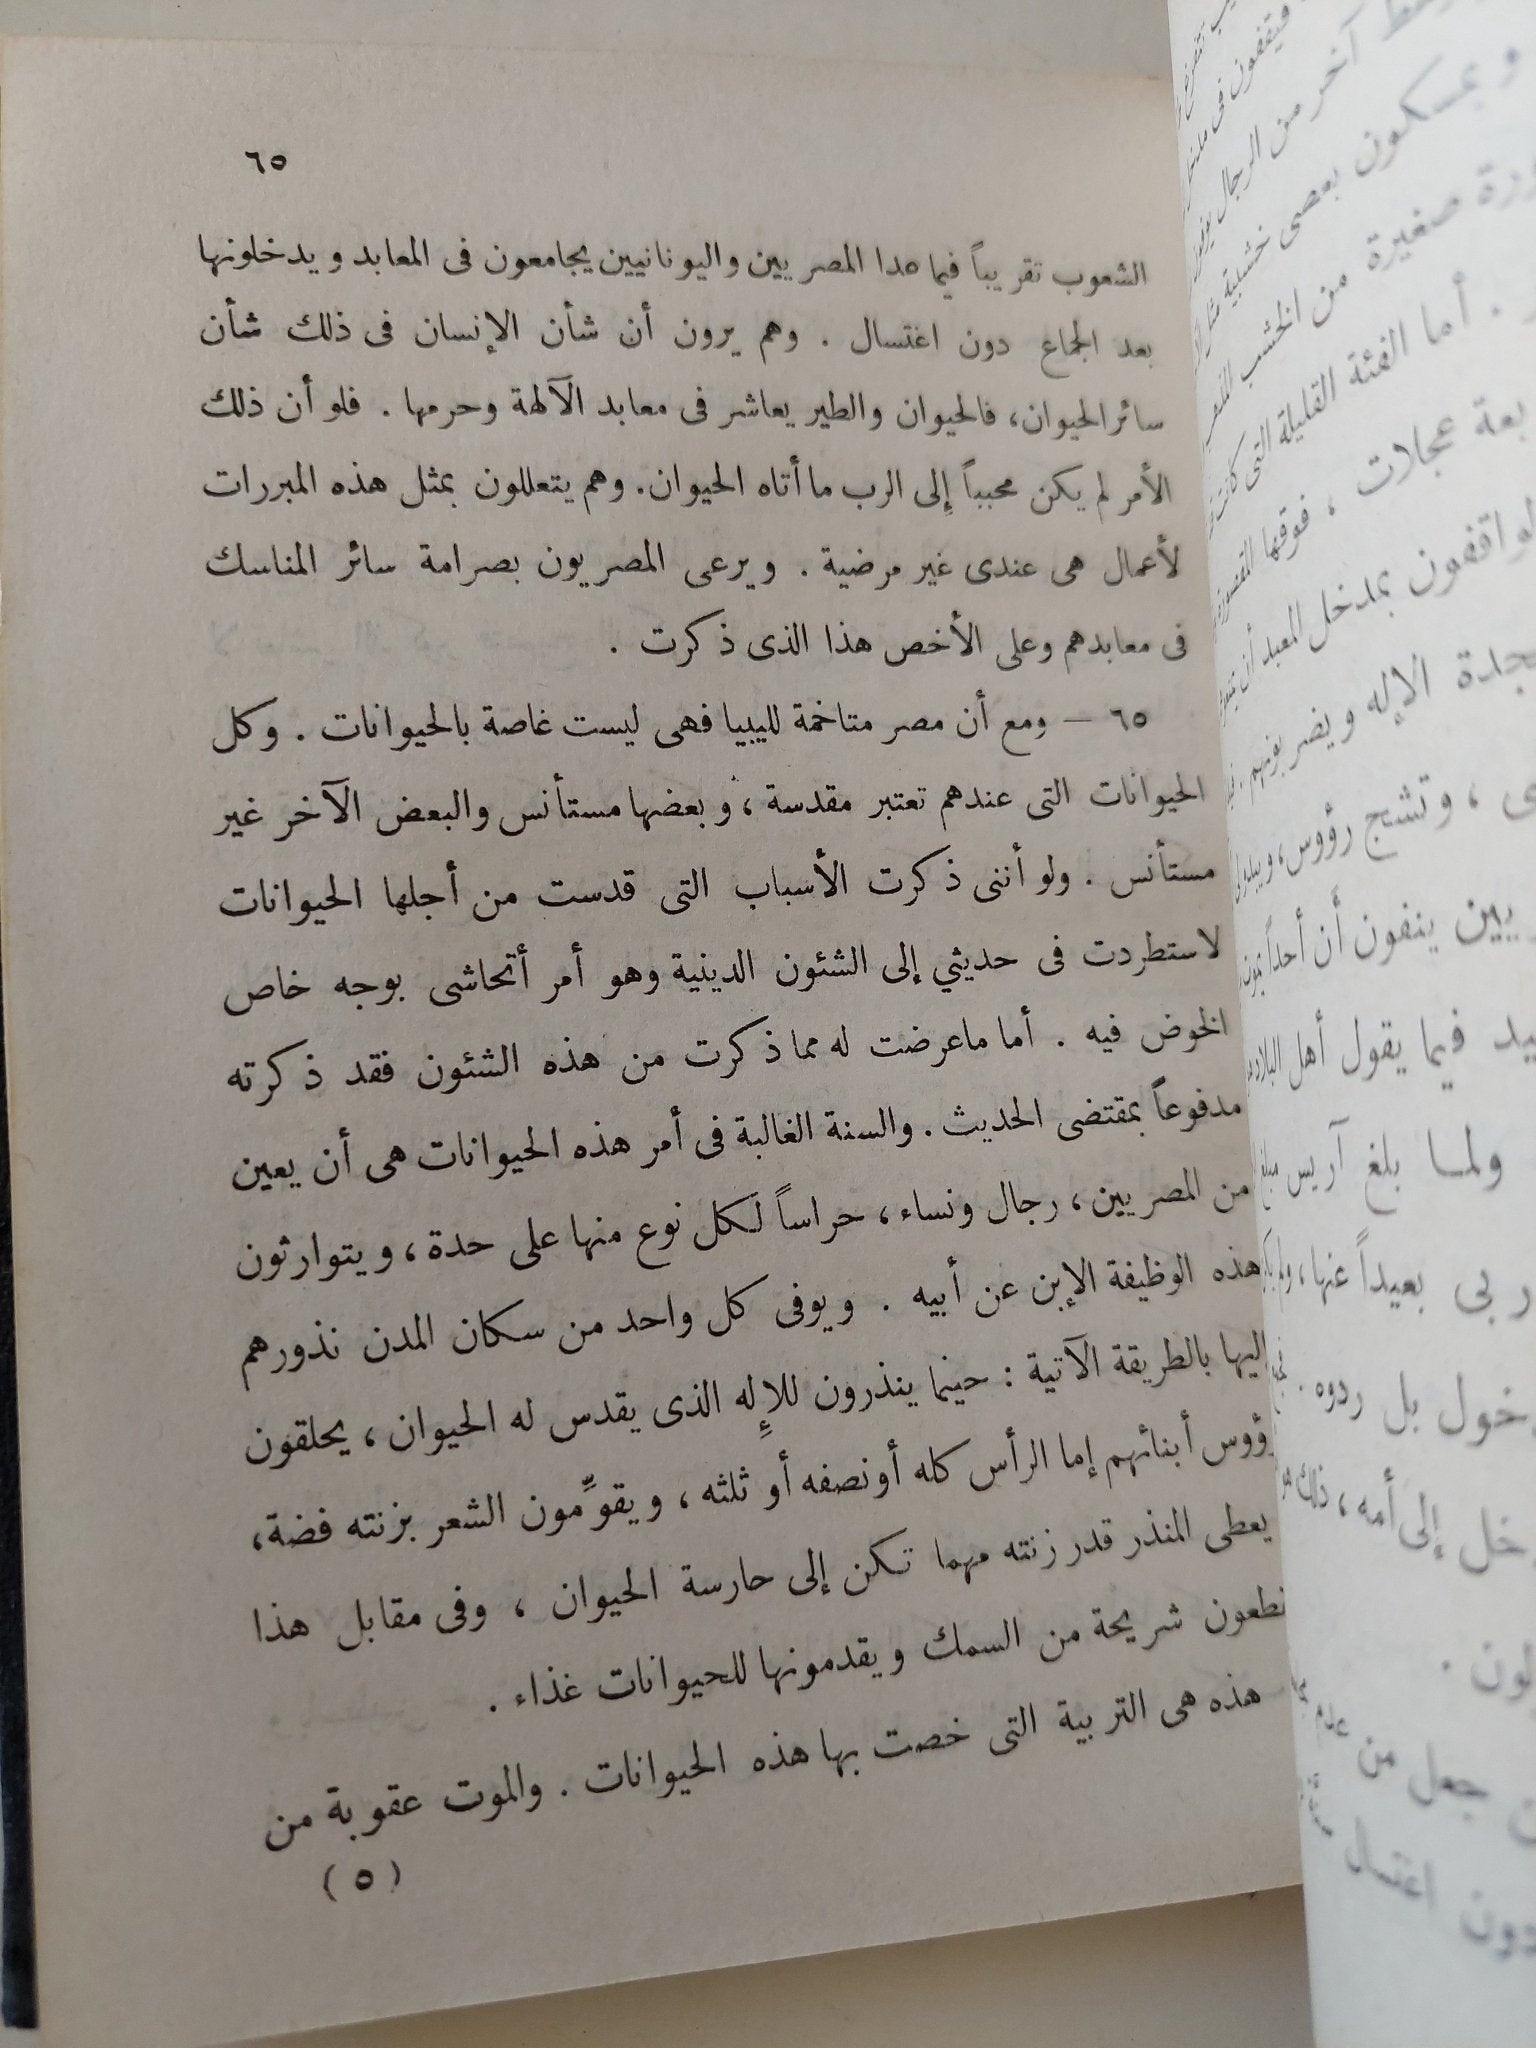 ٦٥
الشعوب تقريباً فيما عدا المصريين واليونانيين يجامعون فى المعابد ويدخلونها
بعد الجماع دون اغتسال . وهم يرون أن شأن الإنسان فى ذلك شأن
سائر الحيوان، فالحيوان والطير يعاشر فى معابد الآلهة وحرمها . فلو أن ذلك
الأمر لم يكن محبباً إلى الرب ما أتاه الحيوان. وهم يتعللون بمثل هذه المبررات
لأعمال هى عندى غير مرضية . ويرعى المصريون بصرامة سائر المناسك
فى معابدهم وعلى الأخص هذا الذى ذكرت .
٦٥ – ومع أن مصر متاخمة لليبيا فهى ليست غاصة بالحيوانات . وكل
الحيوانات التى عندهم تعتبر مقدسة ، وبعضها مستأنس والبعض الآخر غير
مستأنس . ولو أننى ذكرت الأسباب التى قدست من أجلها الحيوانات
لاستطردت فى حديثي إلى الشئون الدينية وهو أمر أتحاشى بوجه خاص
الخوض فيه . أما ماعرضت له مما ذكرت من هذه الشئون فقد ذكرته
مدفوعاً بمقتضى الحديث . والسنة الغالبة فى أمر هذه الحيوانات هى أن يعين
من المصريين ، رجال ونساء ، حراساً لكل نوع منها على حدة ، ويتوارثون
هذه الوظيفة الإبن عن أبيه . ويوفى كل واحد من سكان المدن نذورهم
إليها بالطريقة الآتية : حينما ينذرون للإله الذى يقدس له الحيوان ، يحلقون
رؤوس أبنائهم إما الرأس كله أو نصفه أو ثلثه ، ويقوِّمون الشعر بزنته فضة،
يعطى المنذر قدر زنته مهما تكن إلى حارسة الحيوان ، وفى مقابل هذا
نطعون شريحة من السمك ويقدمونها للحيوانات غذاء .
هذه هى التربية التى خصت بها هذه الحيوانات . والموت عقوبة من
(٥)
آخر من الرجال
ويمسكون بعصى خشبية
صغيرة من الخشب
. أما الفئة القليلة التى كانت
عجلات ، فوقها المقصورة
لواقفون بمدخل المعبد أن
الإله ويضربونهم .
، وتشج رؤوس،
يين ينفون أن أحداً
فيما يقول أهل البلاد
ولما بلغ آريس
ربى بعيداً عنها ،
بل ردوه .
إلى أمه ، ذلك
جعل من
دون اغتسال